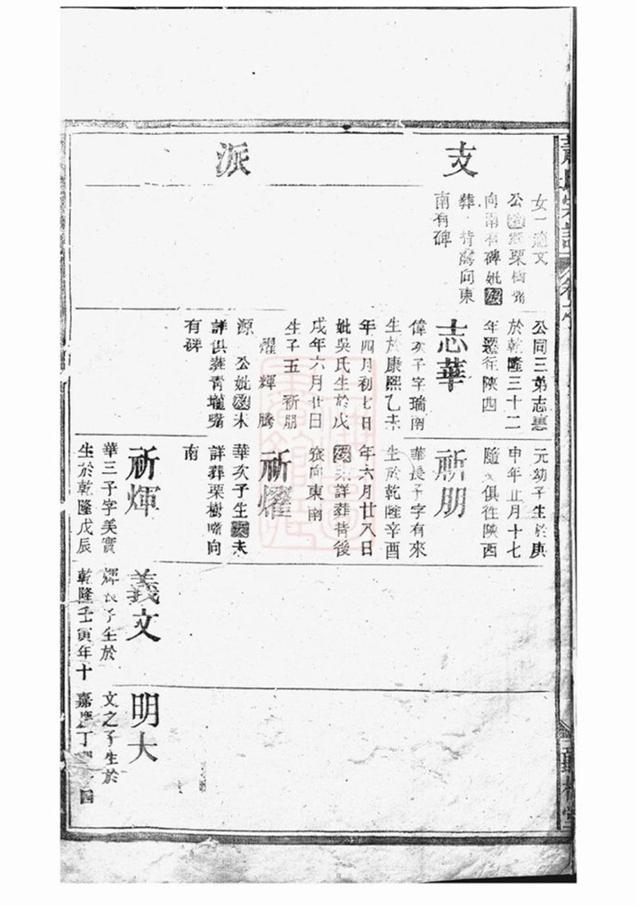 支 派
女一適文
公 葬栗樹嘴
向南有碑妣歿
葬 背灣向東
南有碑
公同三弟志惠
於乾隆三十二
年遷往陝西
志華
偉次子字瑞南
生於康熙乙未
年四月初七日
妣吳氏生於戊
戌年六月廿日
生子五 祈朋
燿 輝 騰
源 公妣歿未
詳俱葬青壠嘴
有碑
元幼子生於庚
申年正月十七
隨父俱往陝西
祈朋
華長子字有來
生於乾隆辛酉
年六月廿八日
歿未詳葬背後
灣向東南
祈燿
華次子生歿未
詳葬栗樹嘴向
南
祈輝
華三子字美實
生於乾隆戊辰
義文
輝長子生於
乾隆壬寅年十
明大
文之子生於
嘉慶丁